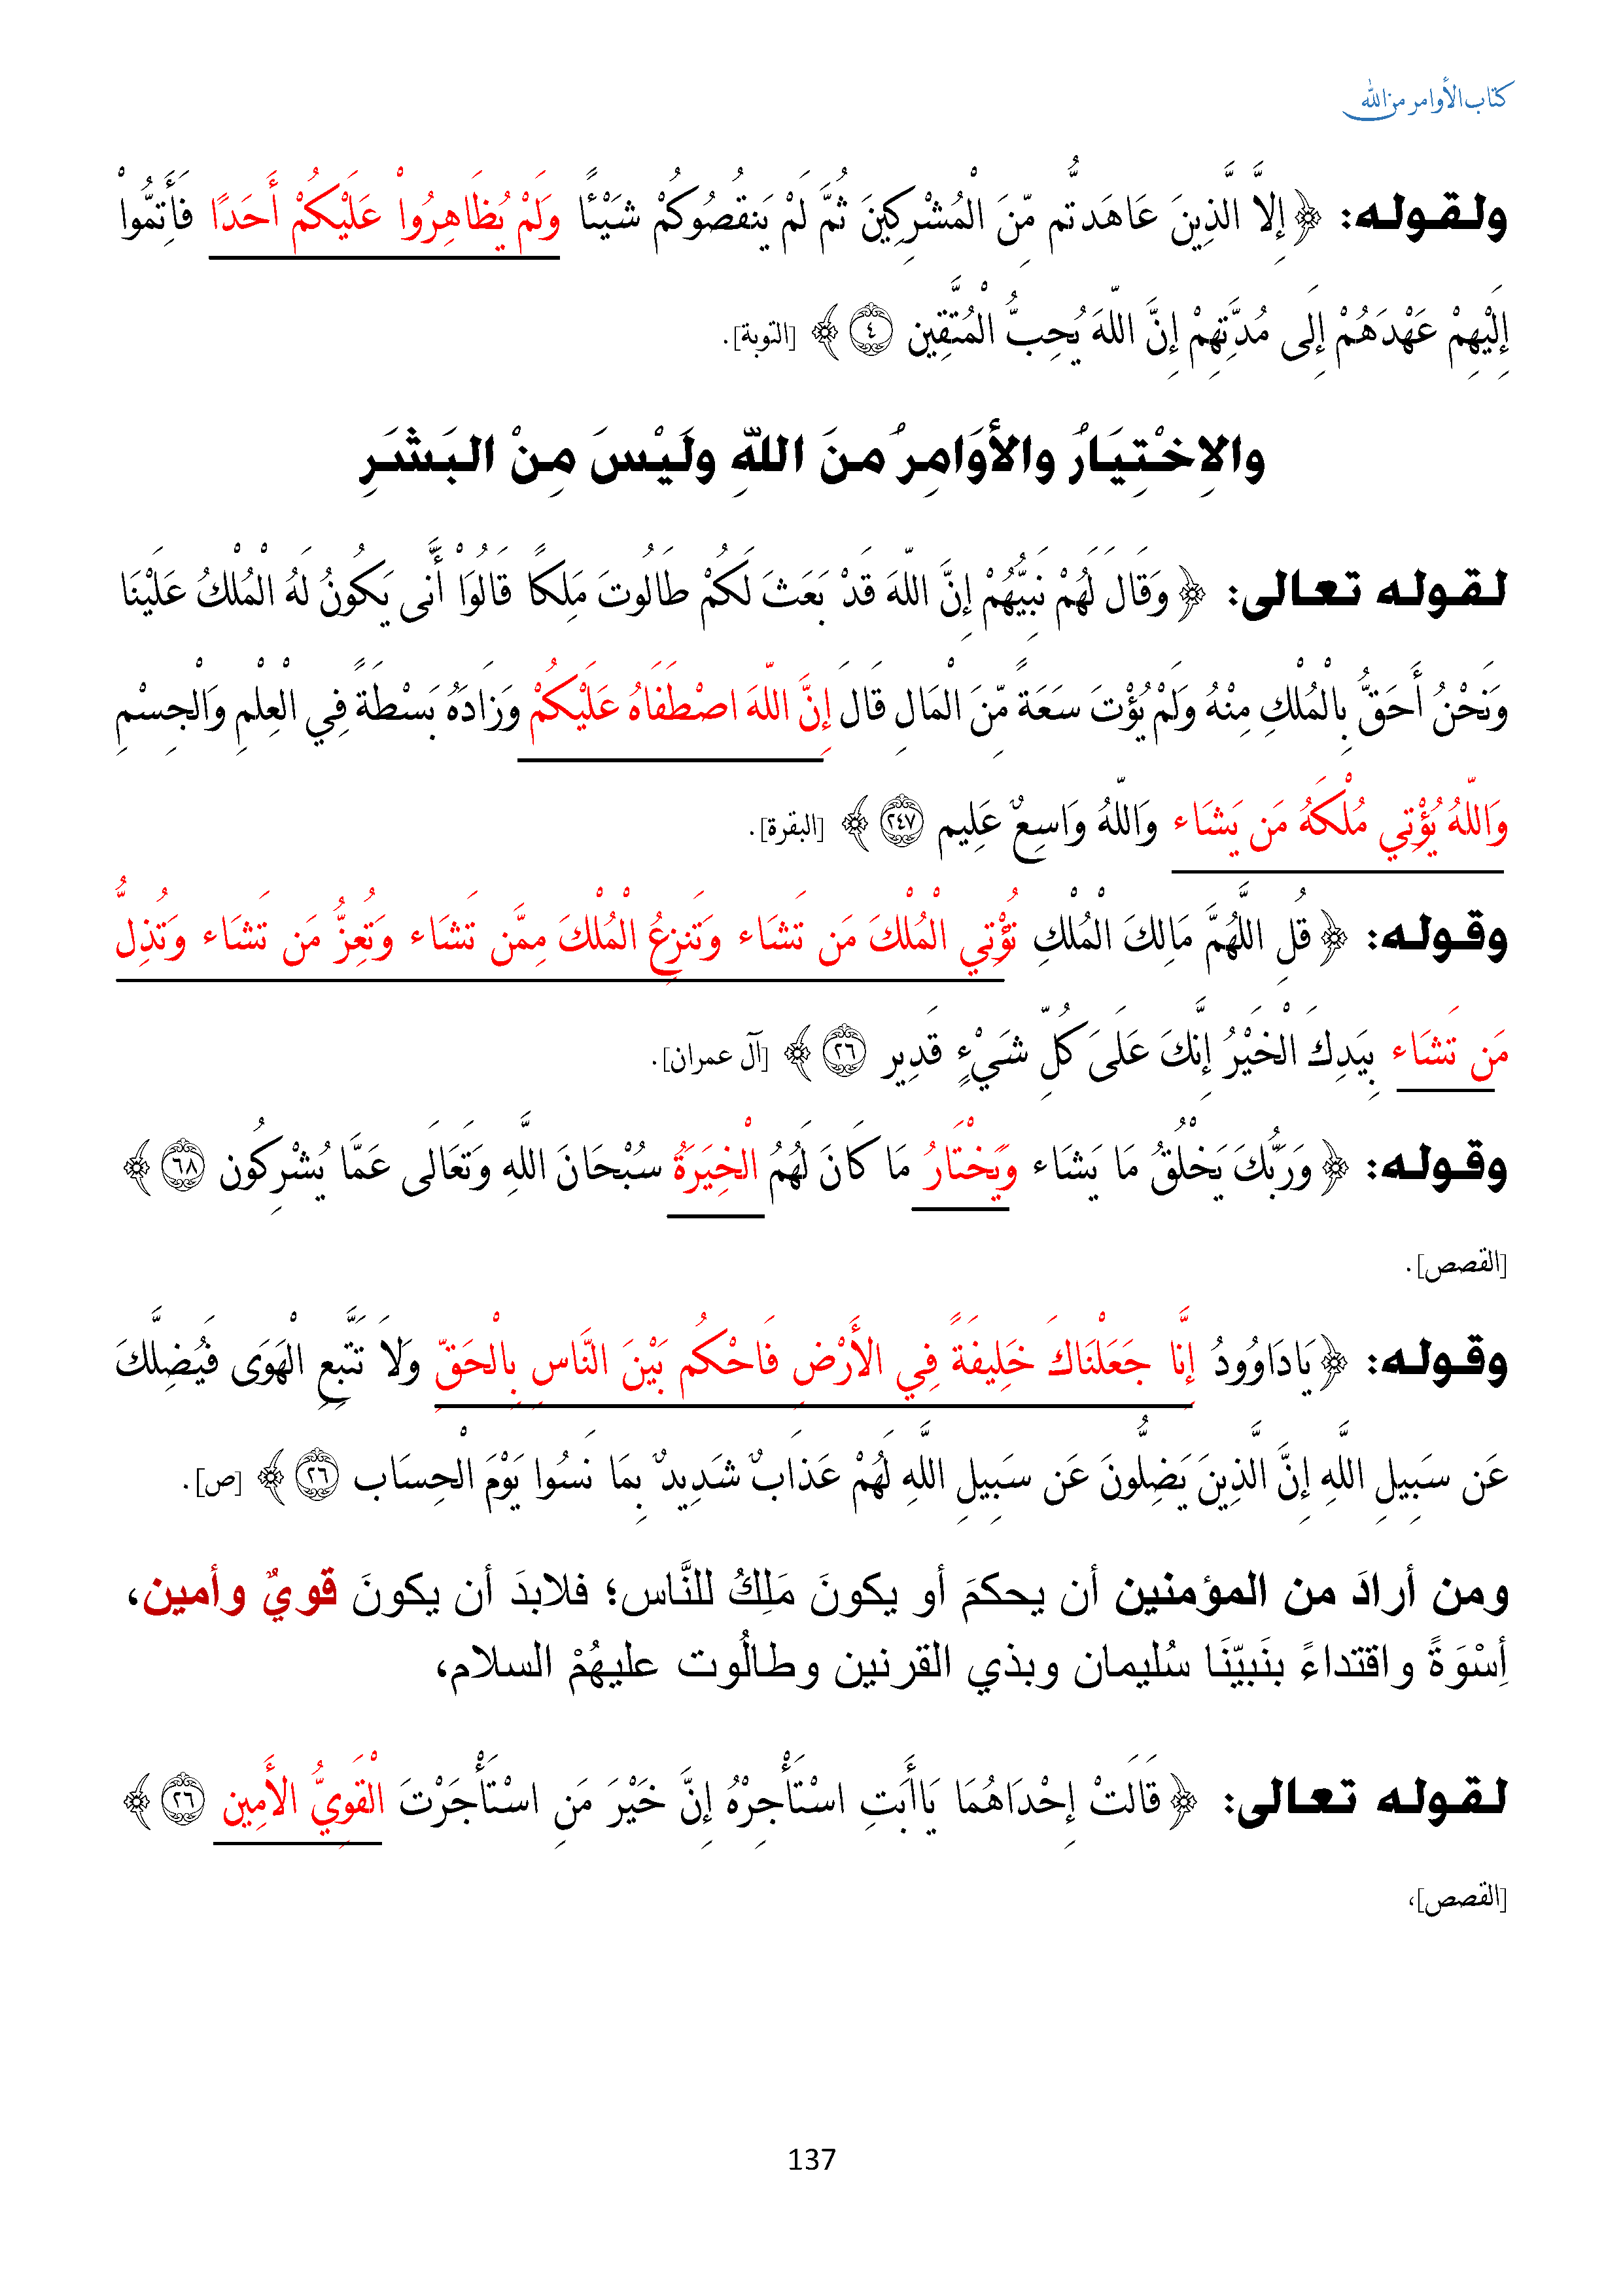 كتاب الأوامر من الله
ولقوله: ﴿إِلاَّ الَّذِينَ عَاهَدتُّم مِّنَ الْمُشْرِكِينَ ثُمَّ لَمْ يَنقُصُوكُمْ شَيْئًا وَلَمْ يُظَاهِرُواْ عَلَيْكُمْ أَحَدًا فَأَتِمُّواْ
إِلَيْهِمْ عَهْدَهُمْ إِلَى مُدَّتِهِمْ إِنَّ اللّهَ يُحِبُّ الْمُتَّقِين ٤ ﴾ [التوبة].
والاِخْتِيَارُ والأوَامِرُ منَ اللّهِ ولَيْسَ مِنْ البَشَرِ
لقوله تعالى: ﴿وَقَالَ لَهُمْ نَبِيُّهُمْ إِنَّ اللّهَ قَدْ بَعَثَ لَكُمْ طَالُوتَ مَلِكًا قَالُوَاْ أَنَّى يَكُونُ لَهُ الْمُلْكُ عَلَيْنَا
وَنَحْنُ أَحَقُّ بِالْمُلْكِ مِنْهُ وَلَمْ يُؤْتَ سَعَةً مِّنَ الْمَالِ قَالَ إِنَّ اللّهَ اصْطَفَاهُ عَلَيْكُمْ وَزَادَهُ بَسْطَةً فِي الْعِلْمِ وَالْجِسْمِ
وَاللّهُ يُؤْتِي مُلْكَهُ مَن يَشَاء وَاللّهُ وَاسِعٌ عَلِيم ٢٤٧ ﴾ [البقرة].
وقوله: ﴿قُلِ اللَّهُمَّ مَالِكَ الْمُلْكِ تُؤْتِي الْمُلْكَ مَن تَشَاء وَتَنزِعُ الْمُلْكَ مِمَّن تَشَاء وَتُعِزُّ مَن تَشَاء وَتُذِلُّ
مَن تَشَاء بِيَدِكَ الْخَيْرُ إِنَّكَ عَلَىَ كُلِّ شَيْءٍ قَدِير ٢٦ ﴾ [آل عمران].
وقوله: ﴿وَرَبُّكَ يَخْلُقُ مَا يَشَاء وَيَخْتَارُ مَا كَانَ لَهُمُ الْخِيَرَةُ سُبْحَانَ اللَّهِ وَتَعَالَى عَمَّا يُشْرِكُون ٦٨ ﴾
[القصص].
وقوله: ﴿يَادَاوُودُ إِنَّا جَعَلْنَاكَ خَلِيفَةً فِي الأَرْضِ فَاحْكُم بَيْنَ النَّاسِ بِالْحَقِّ وَلاَ تَتَّبِعِ الْهَوَى فَيُضِلَّكَ
عَن سَبِيلِ اللَّهِ إِنَّ الَّذِينَ يَضِلُّونَ عَن سَبِيلِ اللَّهِ لَهُمْ عَذَابٌ شَدِيدٌ بِمَا نَسُوا يَوْمَ الْحِسَاب ٢٦ ﴾ [ص].
ومن أرادَ من المؤمنين أن يحكمَ أو يكونَ مَلِكُ للنَّاس؛ فلابدَ أن يكونَ قويٌ وأمين،
أِسْوَةً واقتداءً بنَبيّنَا سُليمان وبذي القرنين وطالُوت عليهُمْ السلام،
لقوله تعالى: ﴿قَالَتْ إِحْدَاهُمَا يَاأَبَتِ اسْتَأْجِرْهُ إِنَّ خَيْرَ مَنِ اسْتَأْجَرْتَ الْقَوِيُّ الأَمِين ٢٦ ﴾
[القصص]،
137